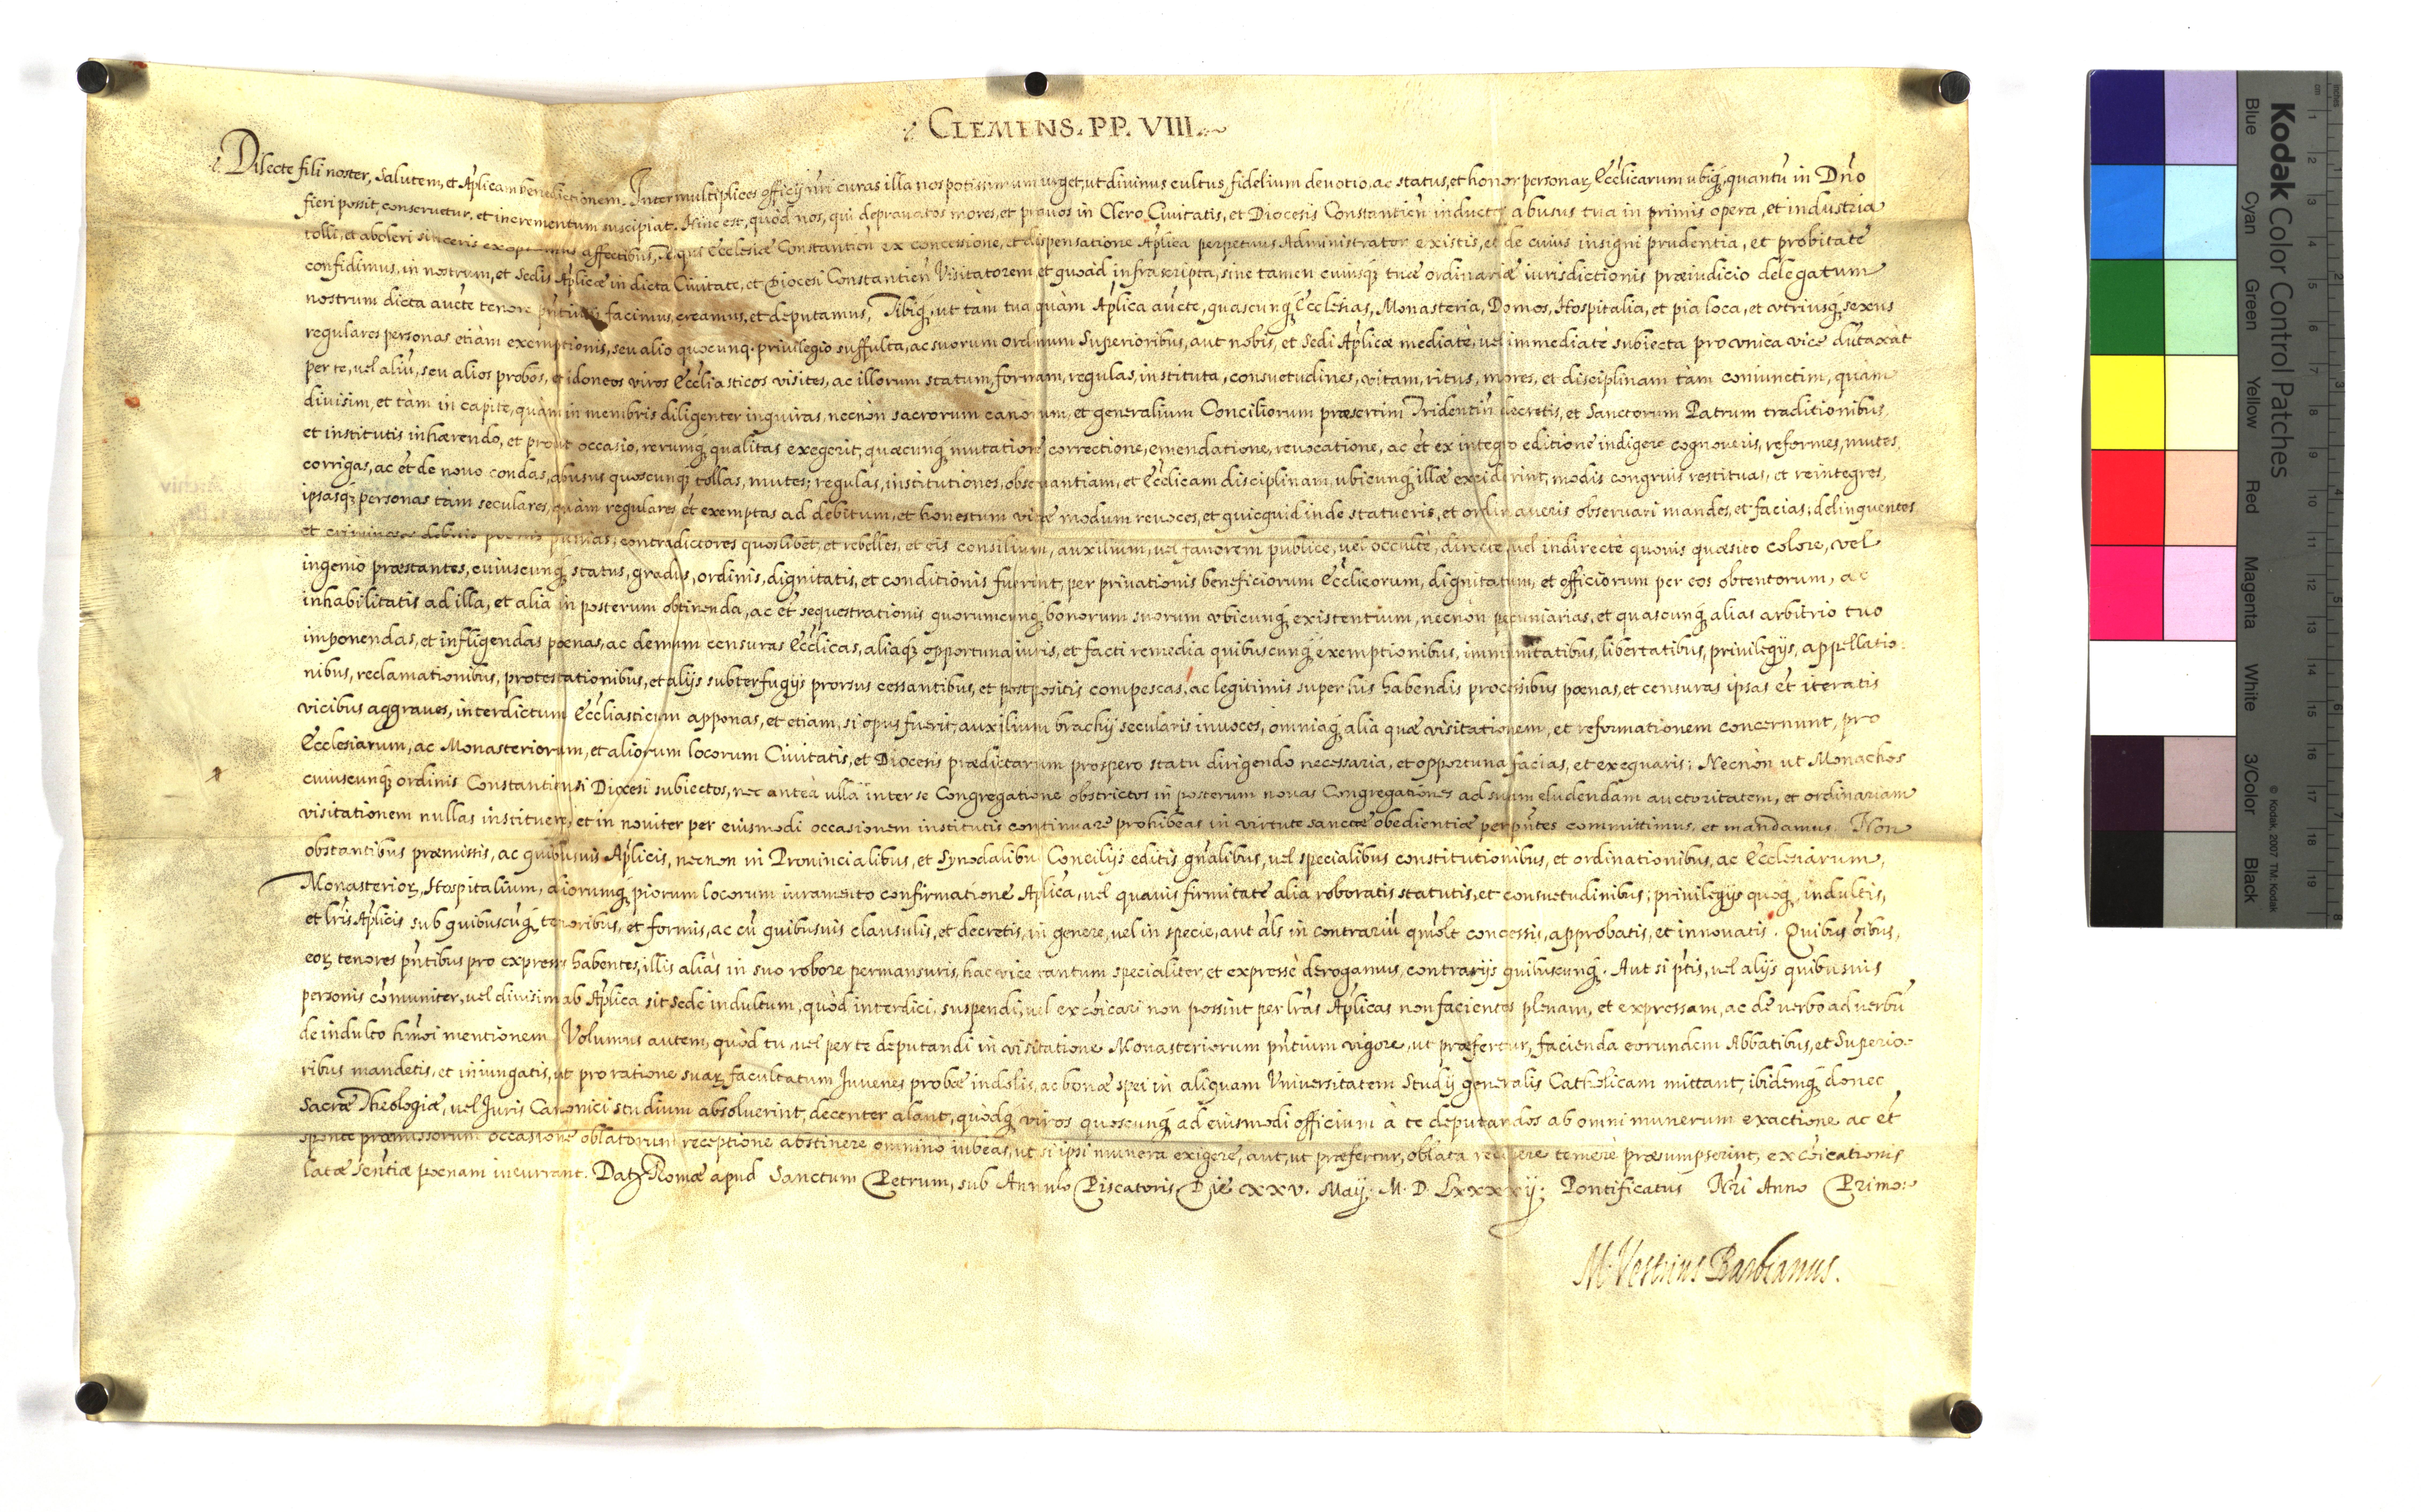 CLEMENS. PP. VIII.
Dilecte fili noster, Salutem, et Aplicam benedictionem. Inter multiplices officij nri curas illa nos potissimum urget, ut divinus cultus, fidelium devotio, ac status, et honor personar, Ecclicarum ubiq, quantu in Dno
fieri possit, conservetur, et incrementum suscipiat. Hinc est, quòd nos, qui depravatos mores, et pravos in Clero Civitatis, et Diocesis Constantien inductos abusus tua in primis opera, et industria
tolli, et aboleri sinceris exoptamus affectibus, Te qui Ecclesiæ Constantien ex concessione, et dispensatione Aplica perpetuus Administrator existis, et de cuius insigni prudentia, et probitate
confidimus, in nostrum, et Sedis Aplicæ in dicta Civitate, et Diocesi Constantien Visitatorem, et quoad infrascripta, sine tamen cuiusq tuæ ordinariæ iurisdictionis præiudicio delegatum
nostrum dicta aucte tenore pntium facimus, creamus, et deputamus, Tibiq, ut tàm tua, quàm Aplica aucte, quascunq Ecclesias, Monasteria, Domos, Hospitalia, et pia loca, et utriusq sexus
regulares personas etiàm exemptionis, seu alio quocunq privilegio suffulta, ac suorum ordinum Superioribus, aut nobis, et Sedi Aplicæ mediatè, vel immediatè subiecta pro unica vice dutaxàt
per te, vel aliu, seu alios probos, et idoneos viros Eccliasticos visites, ac illorum statum, formam, regulas, instituta, consuetudines, vitam, ritus, mores, et disciplinam tàm coniunctim, quàm
divisim, et tàm in capite, quàm in membris diligenter inquiras, necnòn sacrorum canonum, et generalium Conciliorum præsertim Tridentin decretis, et Sanctorum Patrum traditionibus,
et institutis inhærendo, et prout occasio, rerumq qualitas exegerit, quæcunq mutatione, correctione, emendatione, revocatione, ac et ex integro editione indigere cognoveris, reformes, mutes,
corrigas, ac et de novo condas, abusus quoscunq tollas, mutes; regulas, institutiones, observantiam, et Ecclicam disciplinam, ubicunq illæ exciderint, modis congruis restituas, et reintegres,
ipsasq personas tàm seculares, quàm regulares et exemptas ad debitum, et honestum vitæ modum revoces, et quicquid inde statueris, et ordinaveris observari mandes, et facias; delinquentes
et criminosos debitis poenis punias, contradictores quoslibet, et rebelles, et eis consilium, auxilium, vel favorem publicè, vel occultè, directè, vel indirectè quovis quæsito colore, vel
ingenio præstantes, cuiuscunq status, gradus, ordinis, dignitatis, et conditionis fuerint, per privationis beneficiorum Ecclicorum, dignitatum, et officiorum per eos obtentorum, ac
inhabilitatis ad illa, et alia in posterum obtinenda, ac et sequestrationis quorumcunq bonorum suorum ubicunq existentium, necnòn pecuniarias, et quascunq alias arbitrio tuo
imponendas, et infligendas poenas, ac demum censuras Ecclicas, aliaq opportuna iuris, et facti remedia quibuscunq exemptionibus, immunitatibus, libertatibus, privilegijs, appellatio-
nibus, reclamationibus, protestationibus, et alijs subterfugijs prorsus cessantibus, et postpositis compescas, ac legitimis super his habendis processibus poenas, et censuras ipsas et iteratis
vicibus aggraves, interdictum Eccliasticum apponas, et etiam, si opus fuerit, auxilium brachij secularis invoces, omniaq alia quæ visitationem, et reformationem concernunt, pro
Ecclesiarum, ac Monasteriorum, et aliorum locorum Civitatis, et Diocesis prædictarum prospero statu dirigendo necessaria, et opportuna facias, et exequaris; Necnòn ut Monachos
cuiuscunq ordinis Constantiensi Diocesi subiectos, nec anteà ulla inter se Congregatione obstrictos in posterum novas Congregationes ad suam eludendam auctoritatem, et ordinariam
visitationem nullas instituere, et in noviter per eiusmodi occasionem institutis continuare prohibeas in virtute sanctæ obedientiæ per pntes committimus, et mandamus. Non
obstantibus præmissis, ac quibusvis Aplicis, necnon in Provincialibus, et Synodalibus Concilijs editis gnalibus, vel specialibus constitutionibus, et ordinationibus, ac Ecclesiarum,
Monasterior, Hospitalium, aliorumq piorum locorum iuramento confirmatione Aplica, vel quavis firmitate alia roboratis statutis, et consuetudinibus; privilegijs quoq, indultis,
et lris Aplicis sub quibuscuq tenoribus, et formis, ac cu quibusvis clausulis, et decretis, in genere, vel in specie, aut als in contrariu qmolt concessis, approbatis, et innovatis. Quibus oibus,
eor tenores pntibus pro expressis habentes, illis aliàs in suo robore permansuris, hac vice tantum specialiter, et expressè derogamus, contrarijs quibuscunq. Aut si ptis, vel alijs quibusvis
personis comuniter, vel divisim ab Aplica sit Sede indultum, quòd interdici, suspendi, vel excoicari non possint per lras Aplicas non facientes plenam, et expressam, ac de verbo ad verbu
de indulto hmoi mentionem. Volumus autem, quòd tu, vel per te deputandi in visitatione Monasteriorum pntium vigore, ut præfertur, facienda eorundem Abbatibus, et Superio-
ribus mandetis, et iniungatis, ut pro ratione suar facultatum Juvenes probæ indolis, ac bonæ spei in aliquam Universitatem Studij generalis Catholicam mittant, ibidemq donec
Sacræ Theologiæ, vel Juris Canonici studium absolverint, decenter alant, quòdq viros quoscunq ad eiusmodi officium à te deputandos ab omni munerum exactione ac et
sponte præmissorum occasione oblatorum receptione abstinere omninò iubeas, ut si ipsi munera exigere, aut, ut præfertur, oblata recipere temerè præsumpserint, excoicationis
latæ sentiæ poenam incurrant. Dat Romæ apud Sanctum Petrum, sub Annulo Piscatoris Die xxv. Maij. M. D. Lxxxxij; Pontificatus Nri Anno Primo.
M. Vestrius Barbianus.
Kodak Color Control Patches
Blue Cyan Green Yellow Red Magenta White 3/Color Black
© Kodak, 2007 TM: Kodak